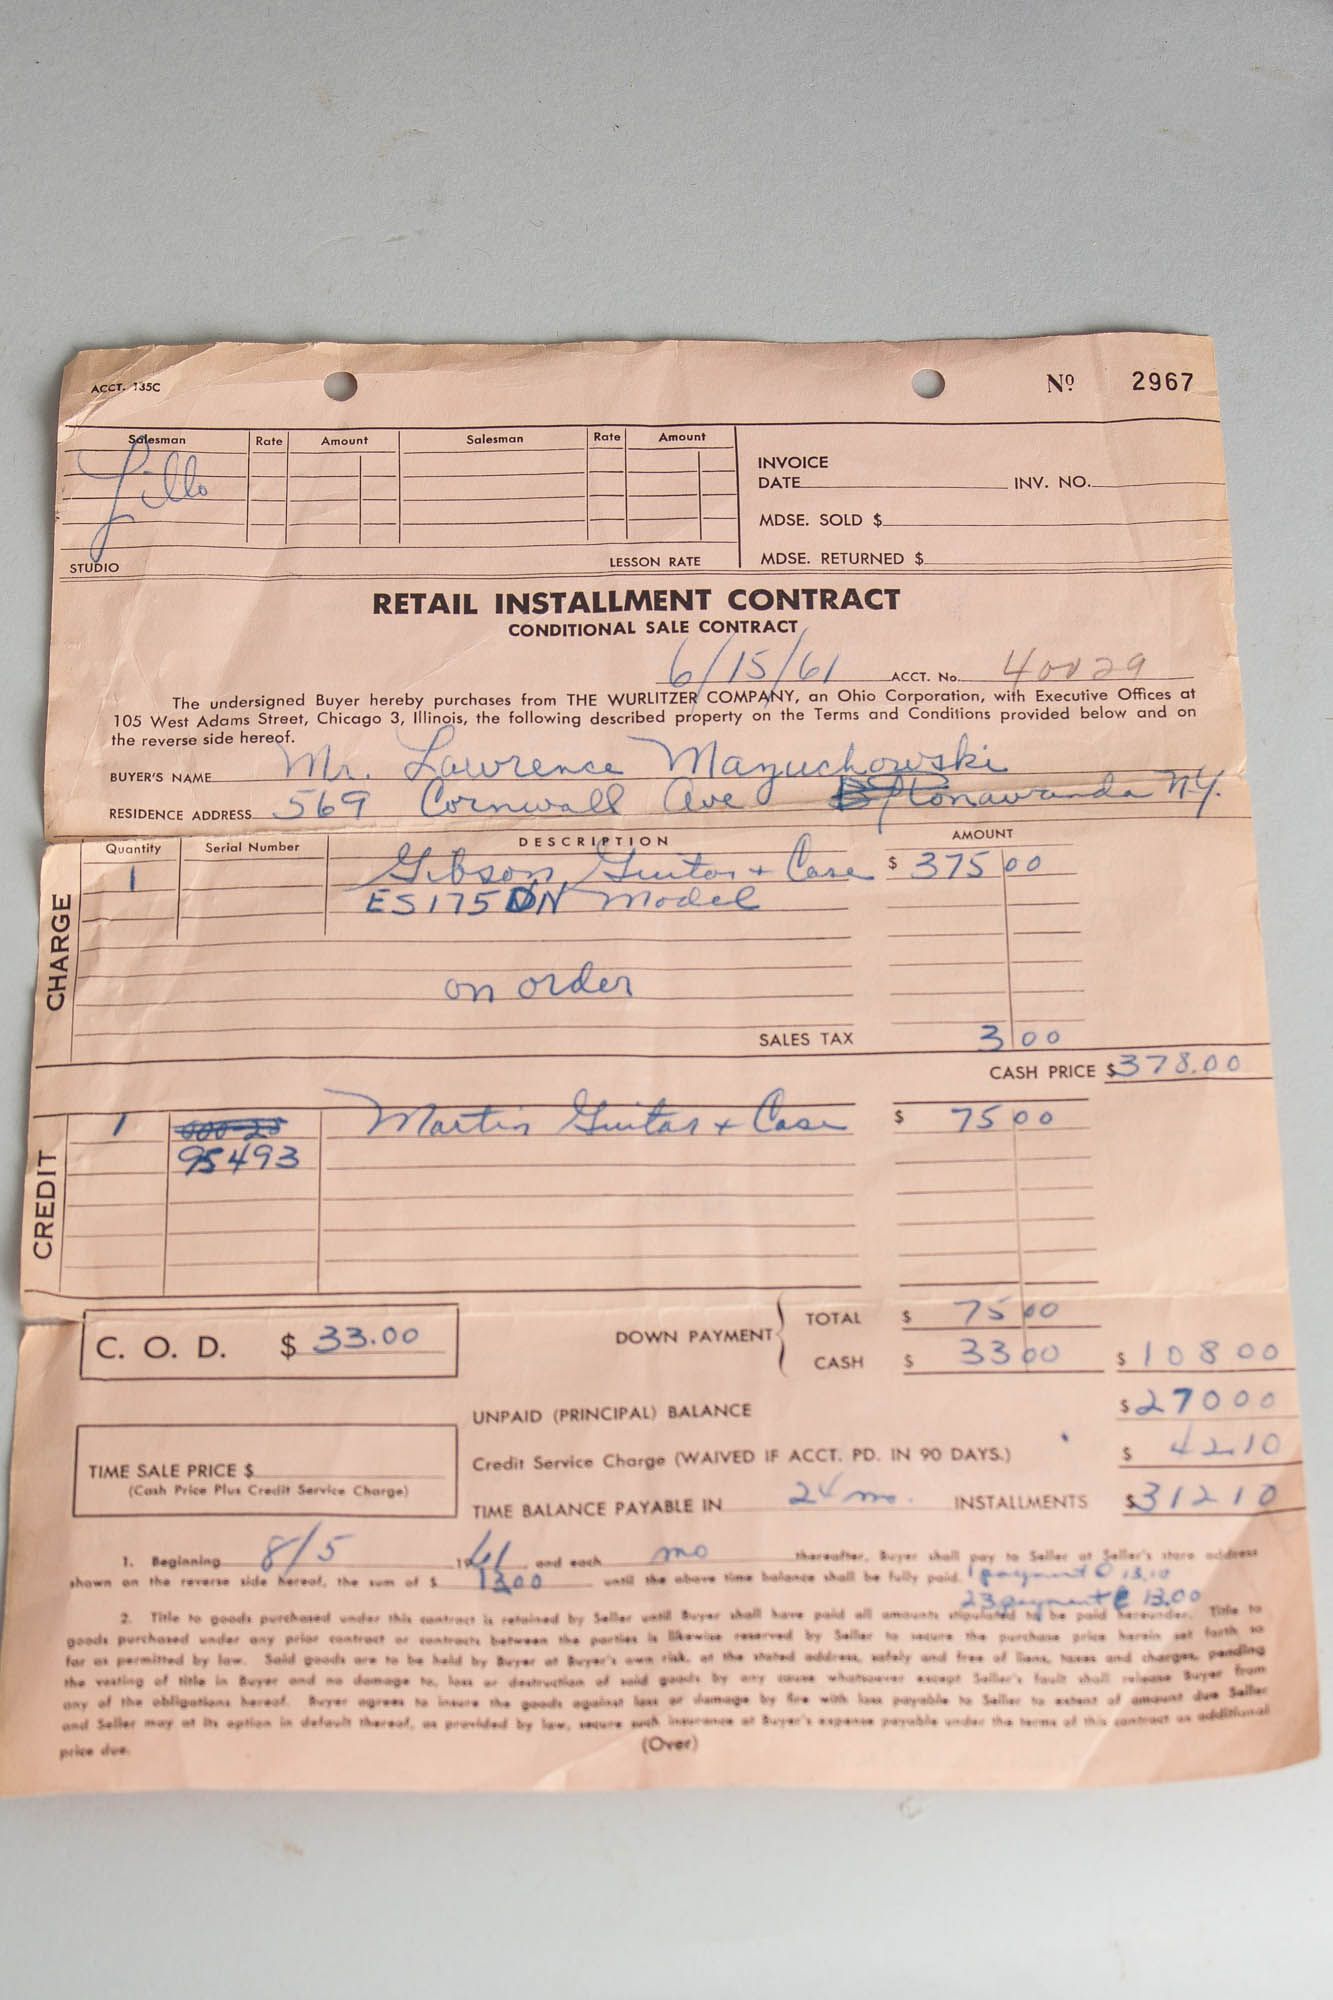 ACCT. 135C
Nº 2967
Salesman Rate Amount Salesman Rate Amount
Lillo
INVOICE
DATE INV. NO.
MDSE. SOLD $
STUDIO LESSON RATE MDSE. RETURNED $
RETAIL INSTALLMENT CONTRACT
CONDITIONAL SALE CONTRACT
6/15/61 ACCT. No. 40029
The undersigned Buyer hereby purchases from THE WURLITZER COMPANY, an Ohio Corporation, with Executive Offices at
105 West Adams Street, Chicago 3, Illinois, the following described property on the Terms and Conditions provided below and on
the reverse side hereof.
BUYER'S NAME Mr. Lawrence Mazuchowski
RESIDENCE ADDRESS 569 Cornwall Ave Tonawanda N.Y.
Quantity Serial Number DESCRIPTION AMOUNT
CHARGE
1 Gibson Guitar + Case $ 375 00
ES175DN Model
on order
SALES TAX 3 00
CASH PRICE $ 378.00
CREDIT
1 Martin Guitar + Case $ 75 00
95493
C. O. D. $ 33.00
DOWN PAYMENT TOTAL $ 75 00
CASH $ 33 00 $ 108 00
UNPAID (PRINCIPAL) BALANCE $ 270 00
TIME SALE PRICE $
(Cash Price Plus Credit Service Charge)
Credit Service Charge (WAIVED IF ACCT. PD. IN 90 DAYS.) $ 42.10
TIME BALANCE PAYABLE IN 24 mo. INSTALLMENTS $ 312 10
1. Beginning 8/5 1961 and each mo thereafter, Buyer shall pay to Seller at Seller's store address
shown on the reverse side hereof, the sum of $ 13.00 until the above time balance shall be fully paid. 1 payment @ 13.10
23 payment @ 13.00
2. Title to goods purchased under this contract is retained by Seller until Buyer shall have paid all amounts stipulated to be paid hereunder. Title to
goods purchased under any prior contract or contracts between the parties is likewise reserved by Seller to secure the purchase price herein set forth so
far as permitted by law. Said goods are to be held by Buyer at Buyer's own risk, at the stated address, safely and free of liens, taxes and charges, pending
the vesting of title in Buyer and no damage to, loss or destruction of said goods by any cause whatsoever except Seller's fault shall release Buyer from
any of the obligations hereof. Buyer agrees to insure the goods against loss or damage by fire with loss payable to Seller to extent of amount due Seller
and Seller may at its option in default thereof, as provided by law, secure such insurance at Buyer's expense payable under the terms of this contract as additional
price due.
(Over)